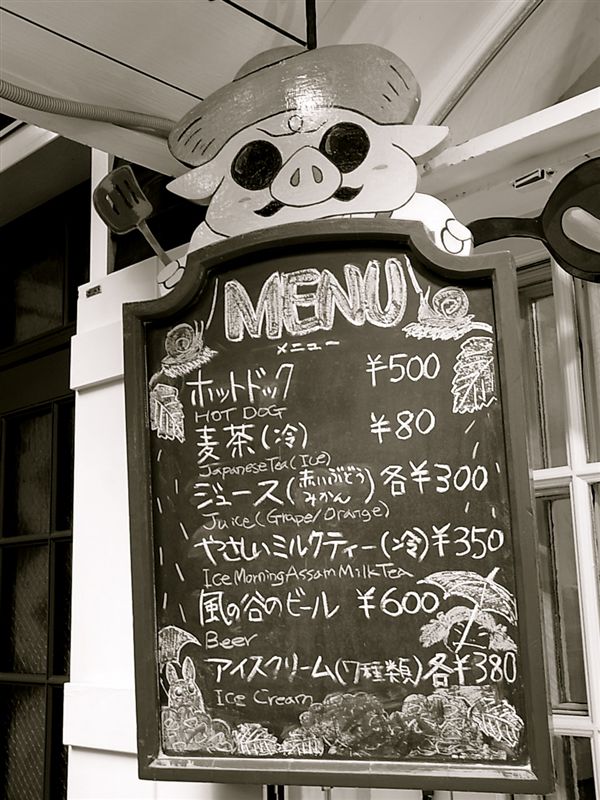 MENU
メニュー
ホットドック ¥500
HOT DOG
麦茶(冷) ¥80
Japanese Tea (Ice)
ジュース(赤いぶどう みかん) 各¥300
Juice (Grape/Orange)
やさしいミルクティー(冷) ¥350
Ice Morning Assam Milk Tea
風の谷のビール ¥600
Beer
アイスクリーム(7種類) 各¥380
Ice Cream